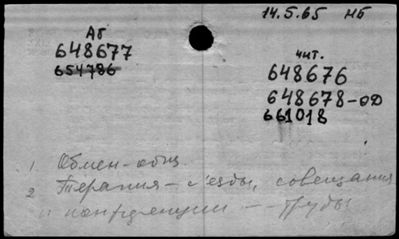 14.5.65 НБ
Аб
648677
654786
чит.
648676
648678-ОД
661018
1 Обмен-общ.
2 Терапия - съезды, совещания
и конференции - Труды